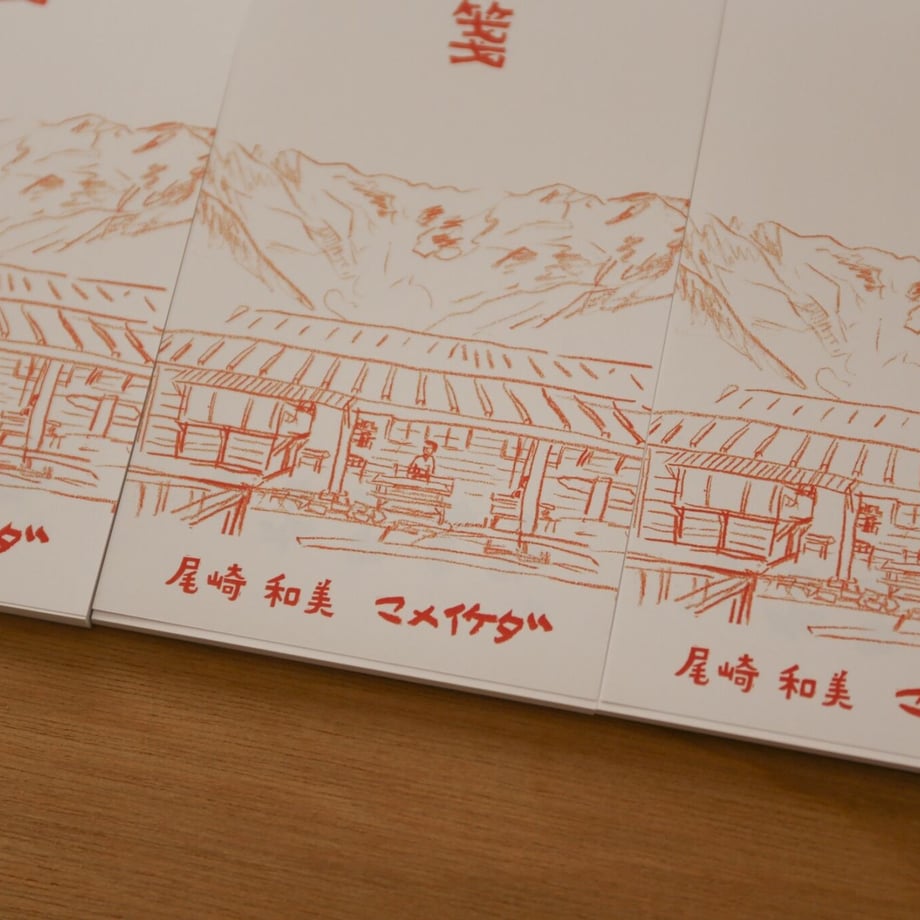 箋
ダ
尾崎 和美 マメイケダ
尾崎 和美 マ